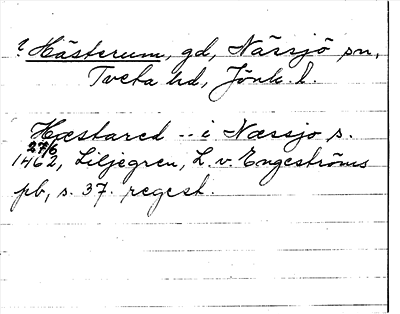 ? Hästerum, gd, Nässjö sn,
Tveta hd, Jönk. l.
Hæstared -- i Næssjo s.
27/6
1462, Liljegren, L. v. Engeströms
pb, s. 37. regest.